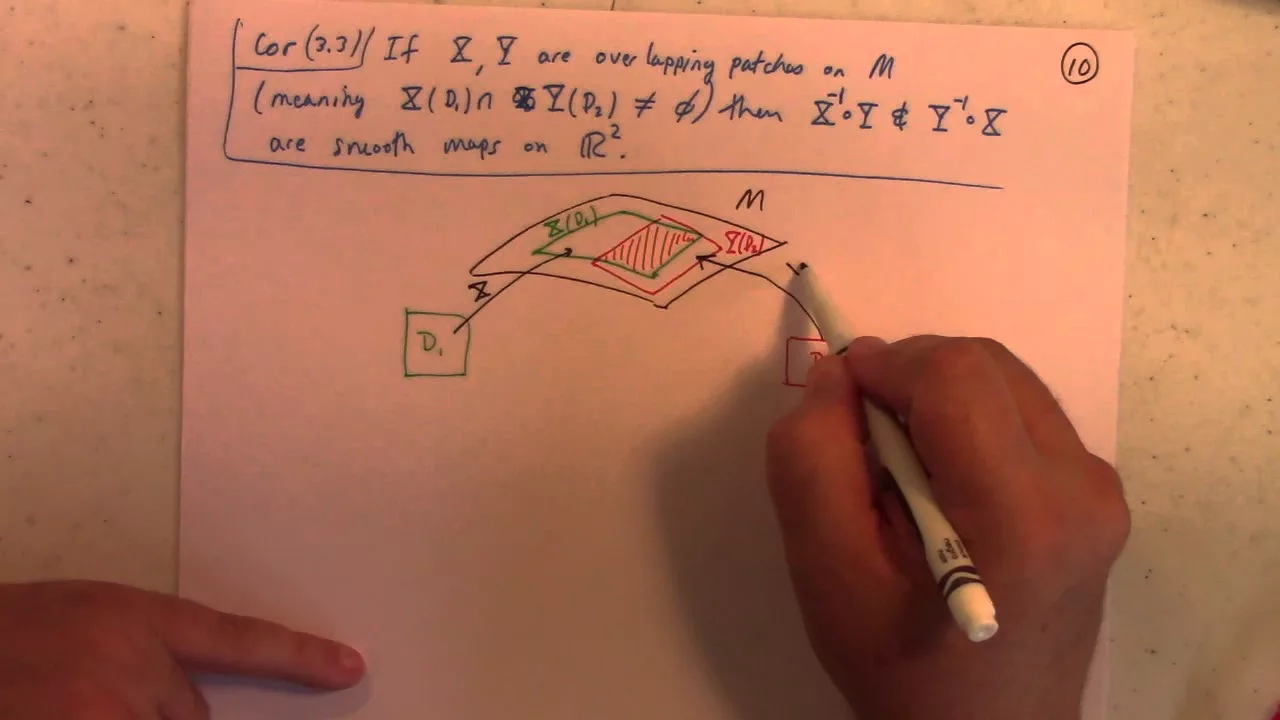 Cor (3.3) If X, Y are overlapping patches on M
(meaning X(D₁) ∩ Y(D₂) ≠ ∅) then X⁻¹∘Y & Y⁻¹∘X
are smooth maps on ℝ².
10
M
X(D₁)
Y(D₂)
X
D₁